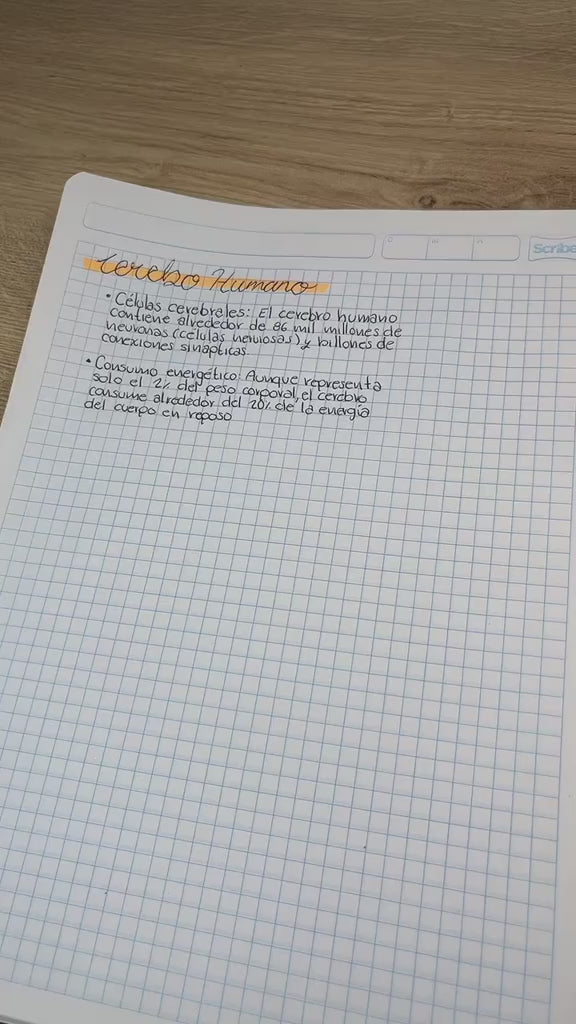 Scribe
Cerebro Humano
• Células cerebrales: El cerebro humano
contiene alrededor de 86 mil millones de
neuronas (células nerviosas) y billones de
conexiones sinápticas.
• Consumo energético: Aunque representa
solo el 2% del peso corporal, el cerebro
consume alrededor del 20% de la energía
del cuerpo en reposo